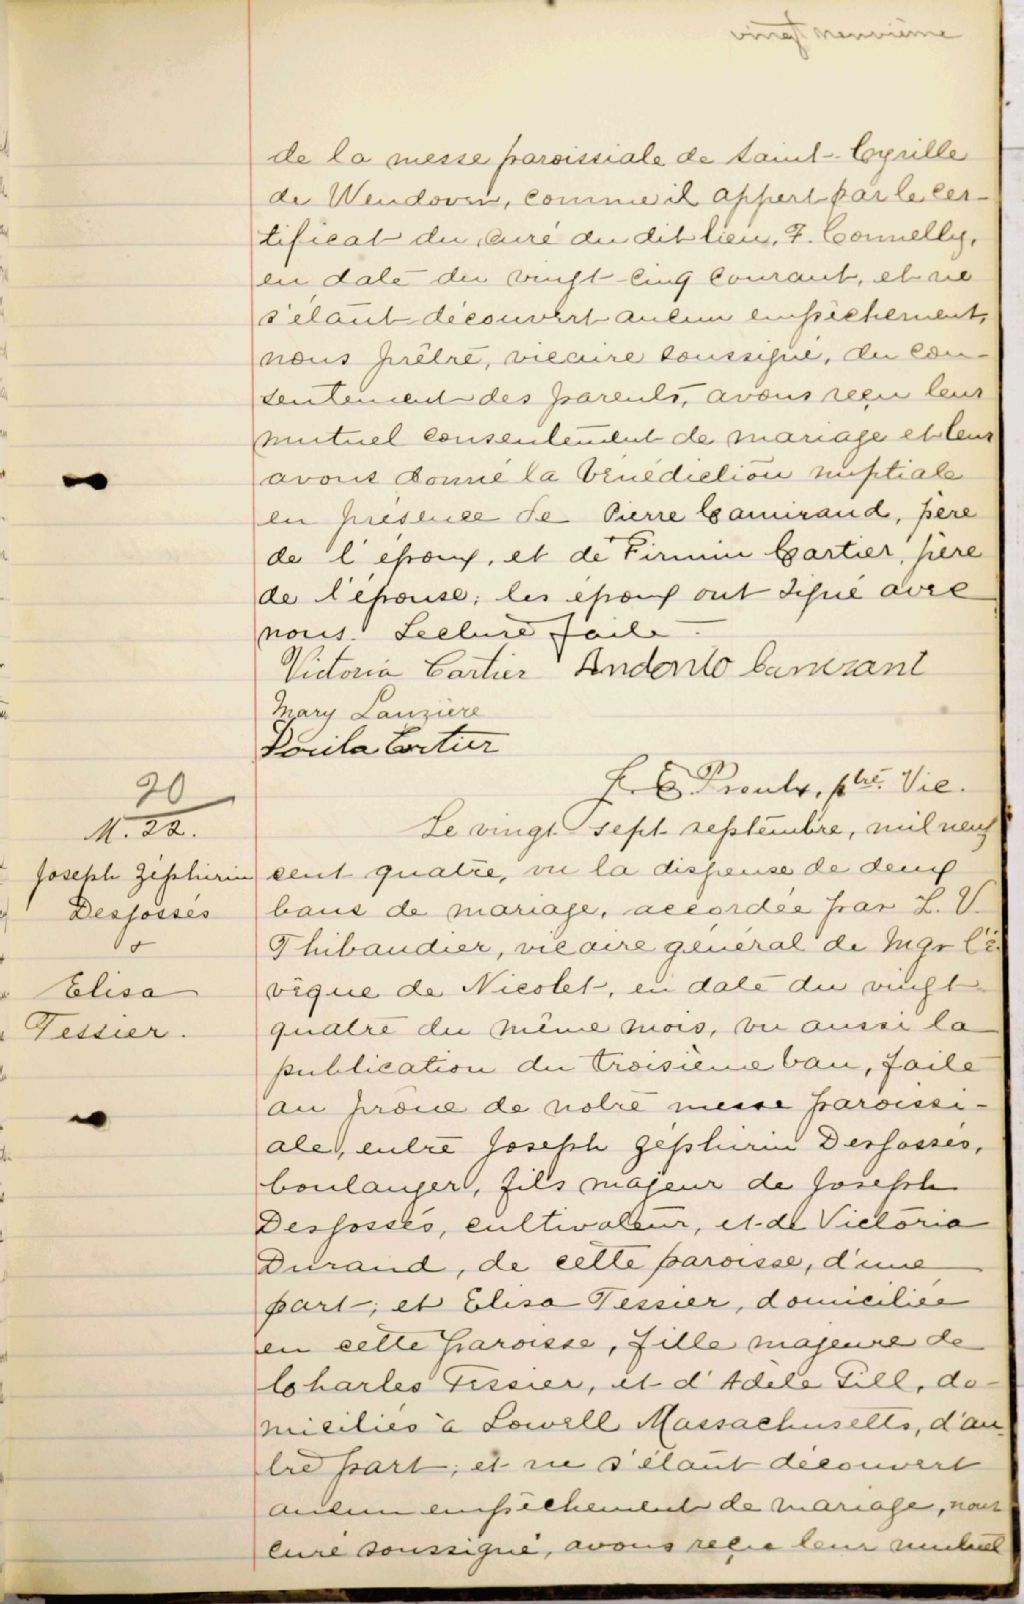 vingt neuvième
de la messe paroissiale de Saint-Cyrille
de Wendover, comme il appert par le cer-
tificat du curé du dit lieu, F. Connelly,
en date du vingt-cinq courant, et ne
s'étant découvert aucun empêchement,
nous prêtre, vicaire soussigné, du con-
sentement des parents, avons reçu leur
mutuel consentement de mariage et leur
avons donné la bénédiction nuptiale
en présence de Pierre Camirand, père
de l'époux, et de Firmin Cartier, père
de l'épouse; les époux ont signé avec
nous. Lecture faite.
Victoria Cartier Andonto Camirant
Mary Lanzière
Doula Cartier
J. E. Proulx, ptre. Vic.
90
M. 22.
Joseph Zéphirin
Desfossés
&
Elisa
Tessier.
Le vingt sept septembre, mil neuf
cent quatre, vu la dispense de deux
bans de mariage, accordée par L. V.
Thibaudier, vicaire général de Mgr l'é-
vêque de Nicolet, en date du vingt-
quatre du même mois, vu aussi la
publication du troisième ban, faite
au prône de notre messe paroissi-
ale, entre Joseph Zéphirin Desfossés,
boulanger, fils majeur de Joseph
Desfossés, cultivateur, et de Victoria
Durand, de cette paroisse, d'une
part; et Elisa Tessier, domiciliée
en cette paroisse, fille majeure de
Charles Tessier, et d'Adèle Gill, do-
miciliés à Lowell Massachusetts, d'au-
tre part; et ne s'étant découvert
aucun empêchement de mariage, nous
curé soussigné, avons reçu leur mutuel